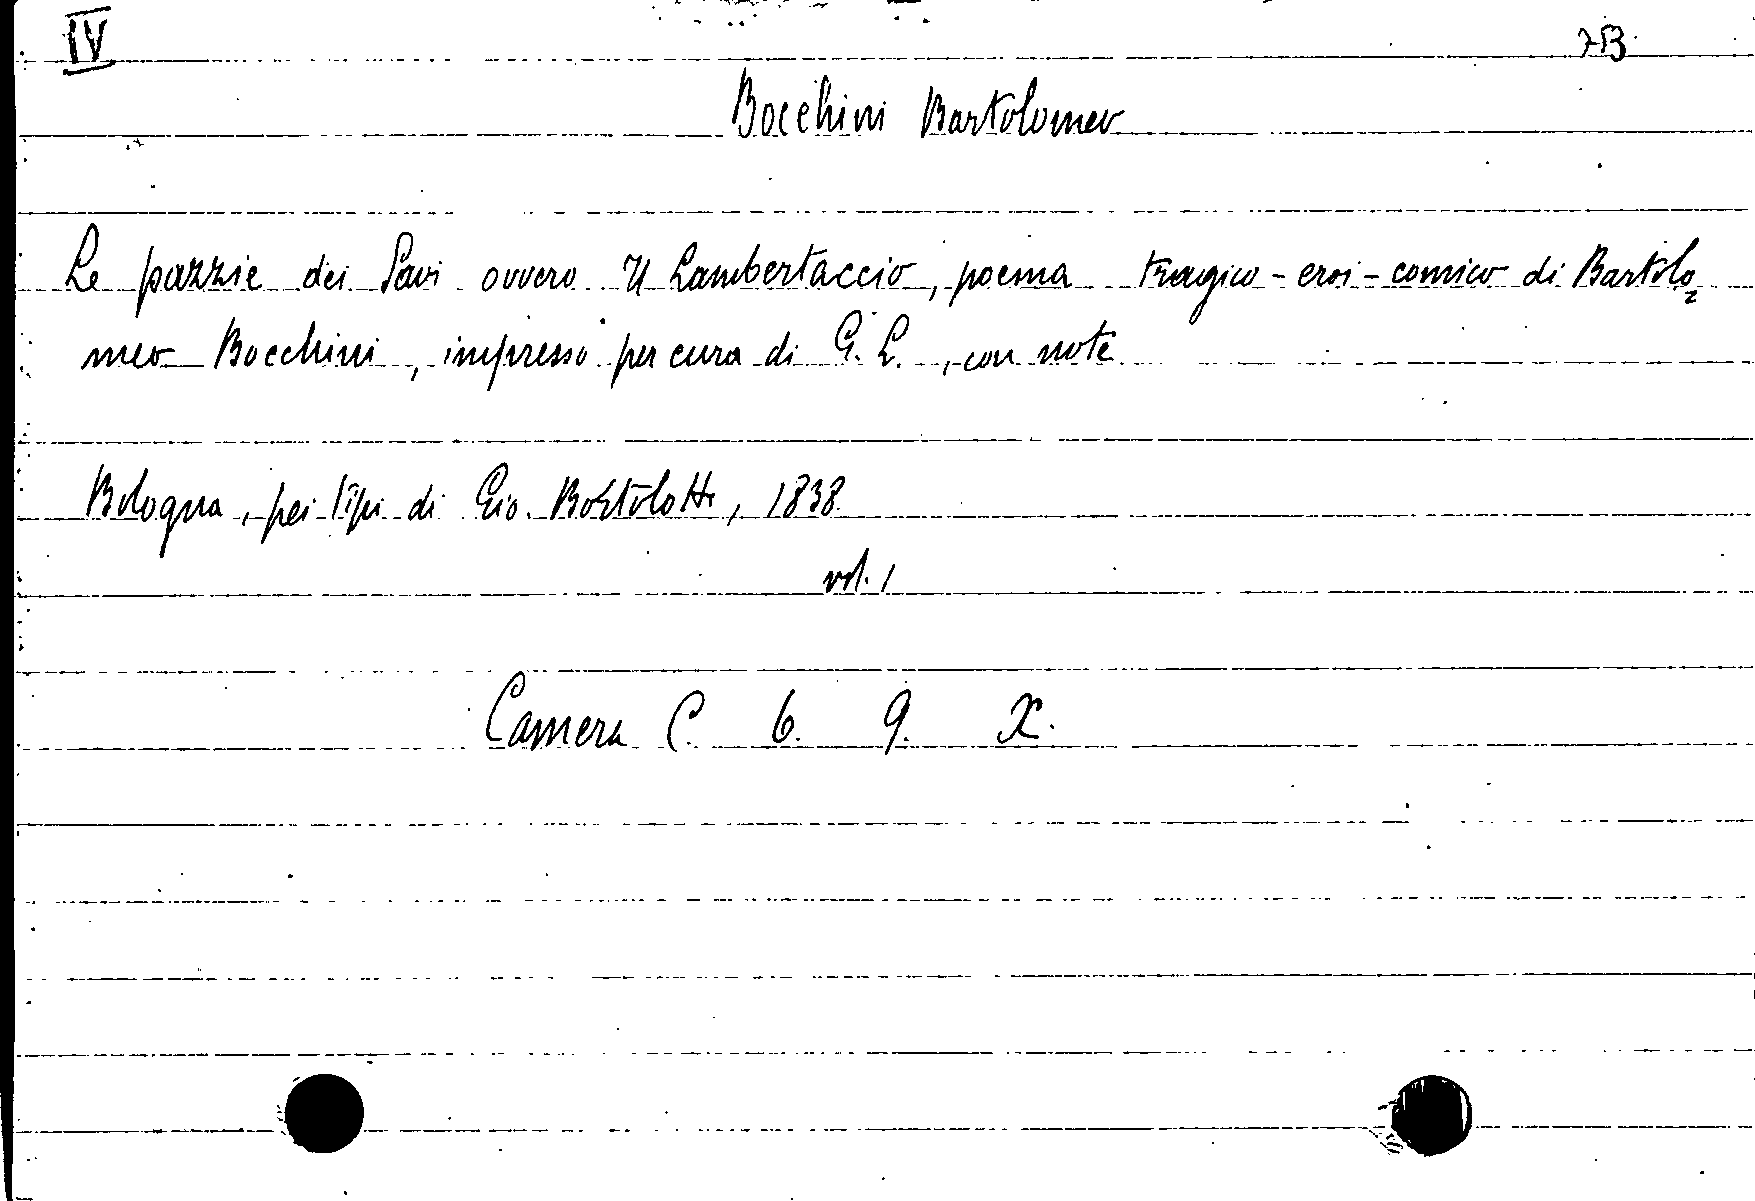 IV
Bocchini Bartolomeo
Le pazzie dei Savi ovvero Il Lambertaccio, poema tragico-eroi-comico di Bartolo=
meo Bocchini, impresso per cura di G. L., con note
Bologna, pei tipi di Gio. Bortolotti, 1838
vol. 1
Camera C. 6. 9. X.